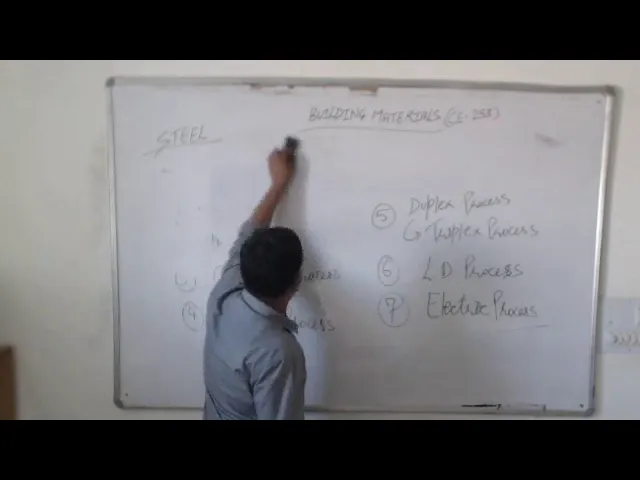 BUILDING MATERIALS (CE-253)
STEEL
④
⑤ Duplex Process
↳ Triplex Process
⑥ L D Process
⑦ Electric Process